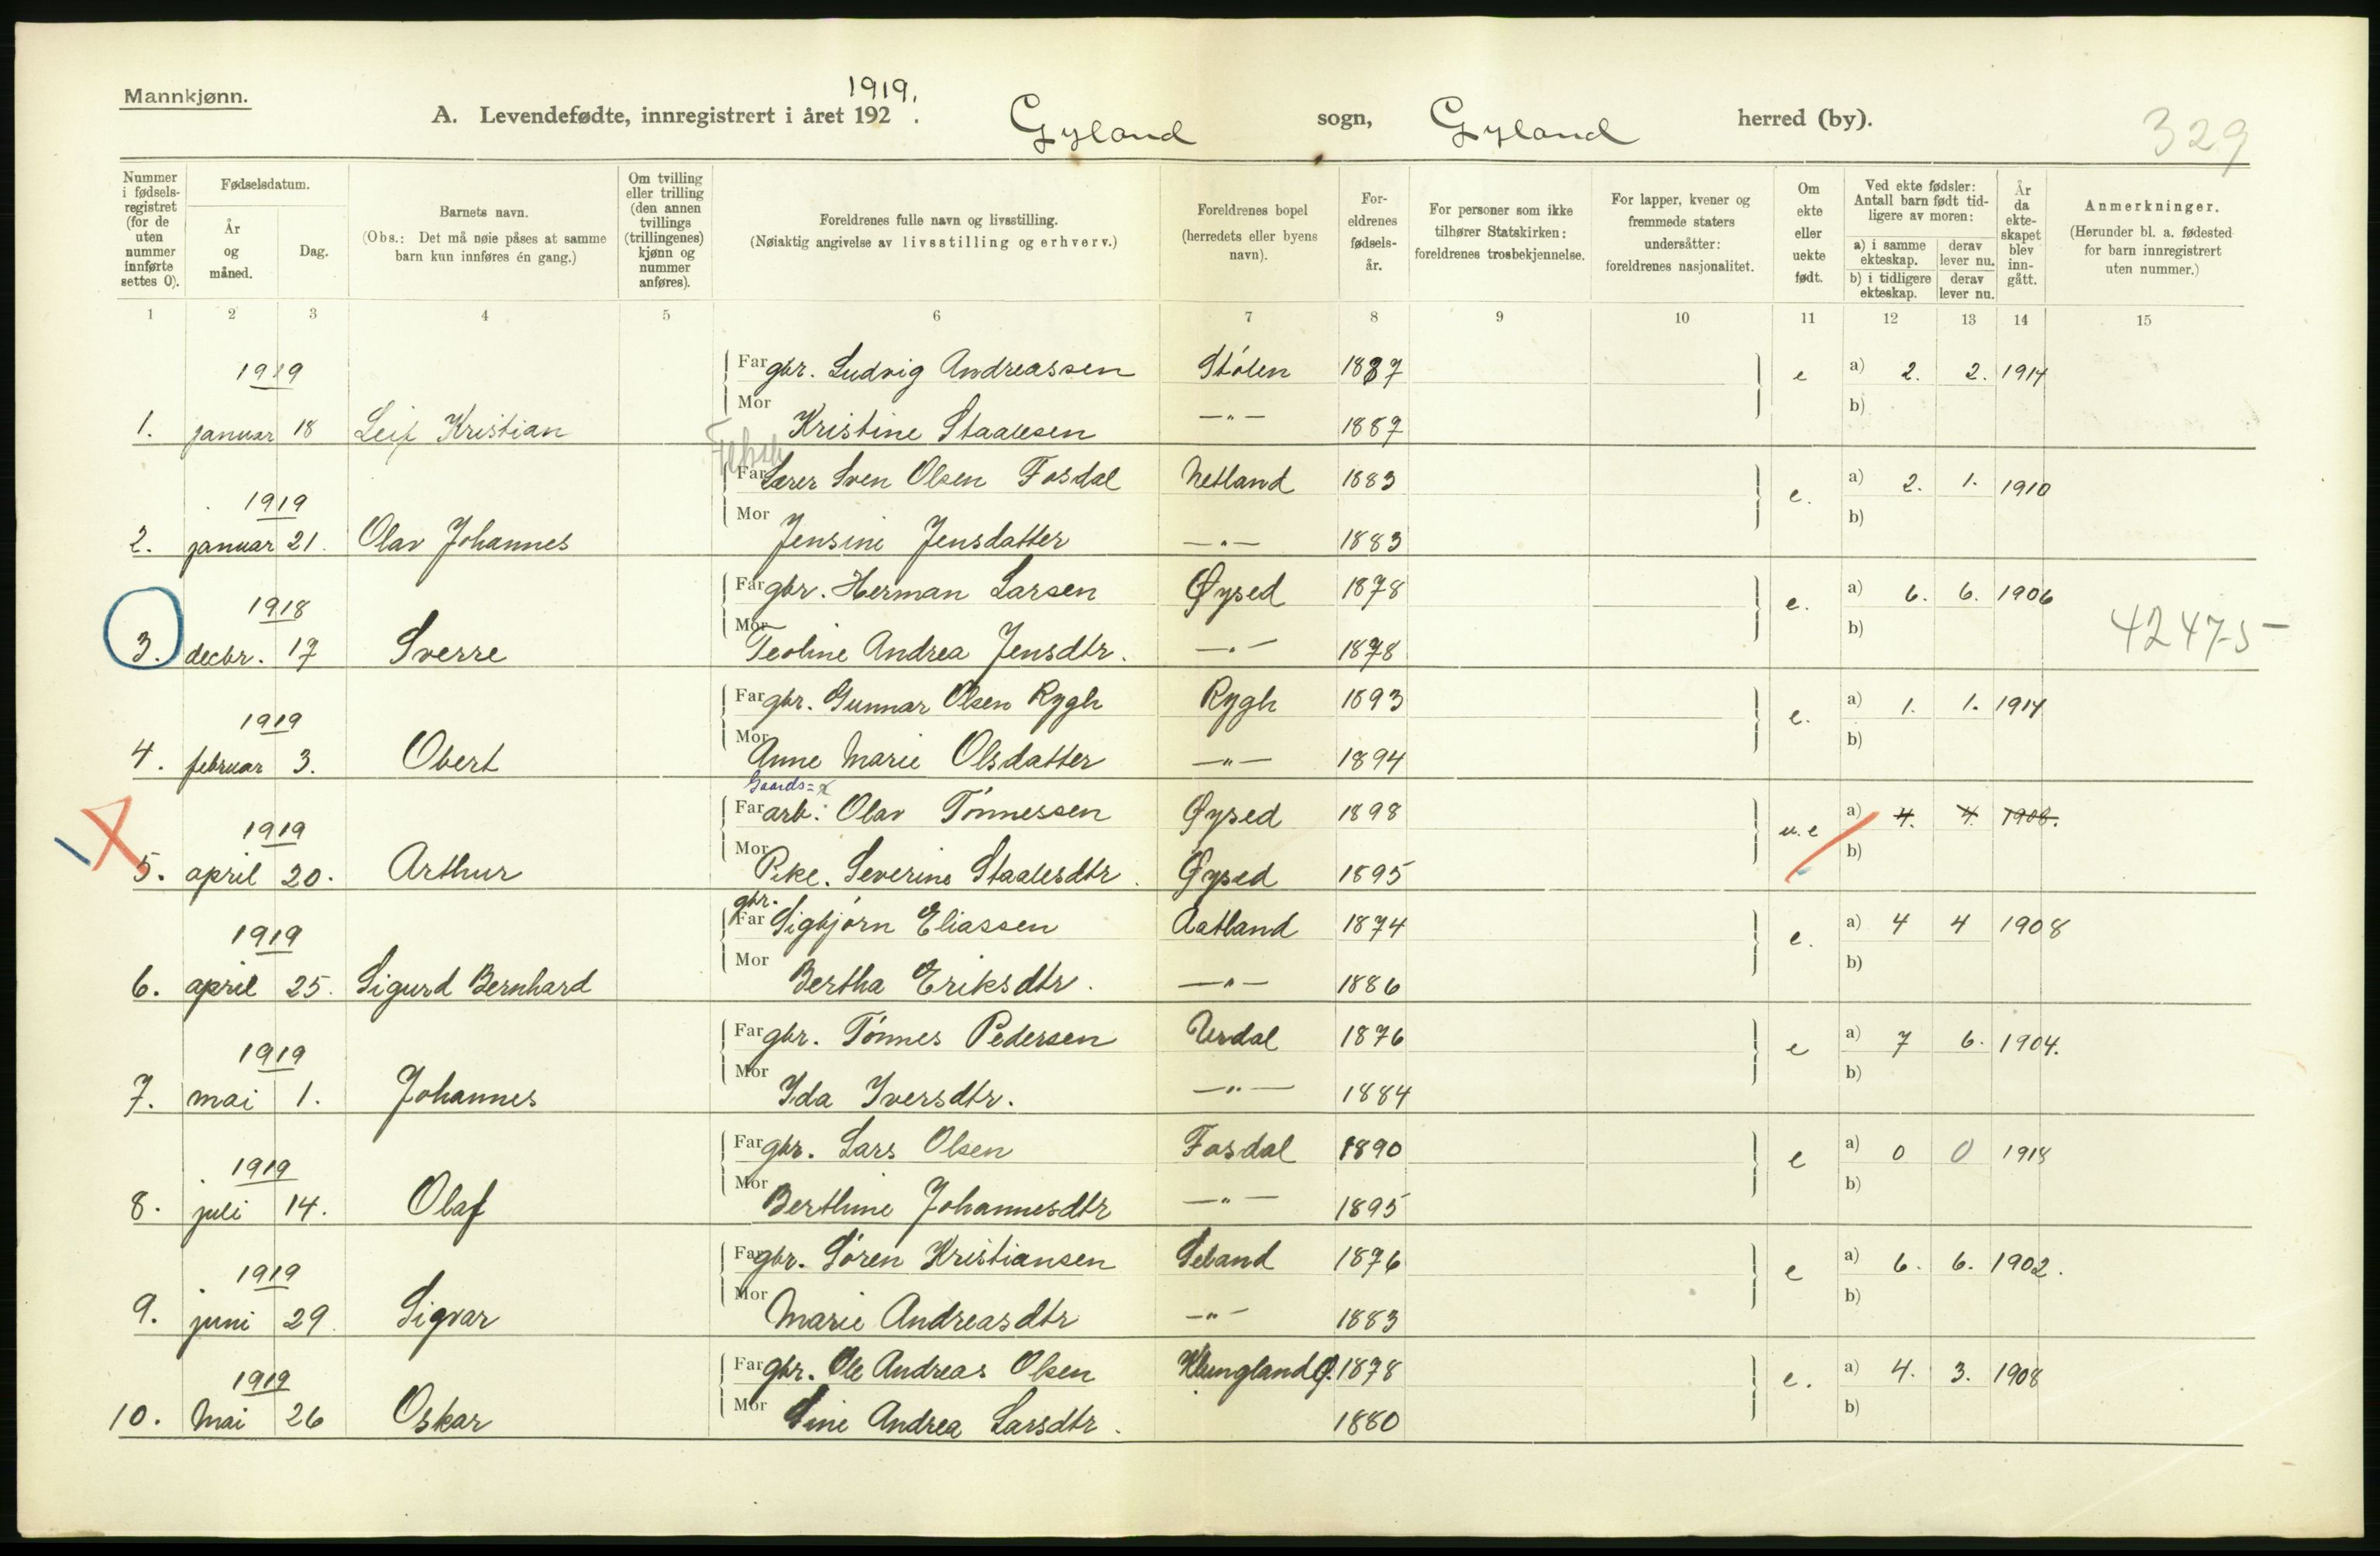 Mannkjønn.
A. Levendefødte, innregistrert i året 192 .
1919.
Gyland sogn, Gyland herred (by).
329
Nummer i fødsels-registret (for de uten nummer innførte settes 0).
Fødselsdatum.
År og måned.
Dag.
Barnets navn.
(Obs.: Det må nøie påses at samme barn kun innføres én gang.)
Om tvilling eller trilling (den annen tvillings (trillingenes) kjønn og nummer anføres).
Foreldrenes fulle navn og livsstilling.
(Nøiaktig angivelse av livsstilling og erhverv.)
Foreldrenes bopel (herredets eller byens navn).
For-eldrenes fødsels-år.
For personer som ikke tilhører Statskirken: foreldrenes trosbekjennelse.
For lapper, kvener og fremmede staters undersåtter: foreldrenes nasjonalitet.
Om ekte eller uekte født.
Ved ekte fødsler: Antall barn født tid-ligere av moren:
a) i samme ekteskap.
derav lever nu.
b) i tidligere ekteskap.
derav lever nu.
År da ekte-skapet blev inn-gått.
Anmerkninger.
(Herunder bl. a. fødested for barn innregistrert uten nummer.)
1 2 3 4 5 6 7 8 9 10 11 12 13 14 15
1919 Far gbr. Ludvig Andreassen Stølen 1887 e a) 2. 2. 1914
1. januar 18 Leif Kristian Mor Kristine Staalesen —"— 1889 b)
1919 Far Lærer Sven Olsen Fosdal Netland 1883 e. a) 2. 1. 1910
2. januar 21. Olav Johannes Mor Jensine Jensdatter —"— 1883 b)
1918 Far gbr. Herman Larsen Øysed 1878 e. a) 6. 6. 1906
3. decbr. 17 Sverre Mor Teoline Andrea Jensdtr. —"— 1878 b) 42475
1919 Far gbr. Gunnar Olsen Rygh Rygh 1893 e. a) 1. 1. 1914
4. februar 3. Obert Mor Anne Marie Olsdatter —"— 1894 b)
Gaards=
1919 Far arb: Olav Tønnessen Øysed 1898 u. e a) 4. 4. 1908.
5. april 20. Arthur Mor Pike. Severine Staalesdtr. Øysed 1895 b)
gbr.
1919 Far Sigbjørn Eliassen Aatland 1874 e. a) 4 4 1908
6. april 25. Sigurd Bernhard Mor Bertha Eriksdtr. —"— 1886 b)
1919 Far gbr. Tønnes Pedersen Urdal 1876 e a) 7 6. 1904.
7. mai 1. Johannes Mor Ida Iversdtr. —"— 1884 b)
1919 Far gbr. Lars Olsen Fosdal 1890 e a) 0 0 1918
8. juli 14. Olaf Mor Berthine Johannesdtr —"— 1895 b)
1919 Far gbr. Søren Kristiansen Seland 1876 e a) 6. 6. 1902.
9. juni 29. Sigvar Mor Marie Andreasdtr —"— 1883 b)
1919 Far gbr. Ole Andreas Olsen Klungland 1878 e. a) 4. 3. 1908
10. Mai 26 Oskar Mor Sine Andrea Larsdtr. 1880 b)